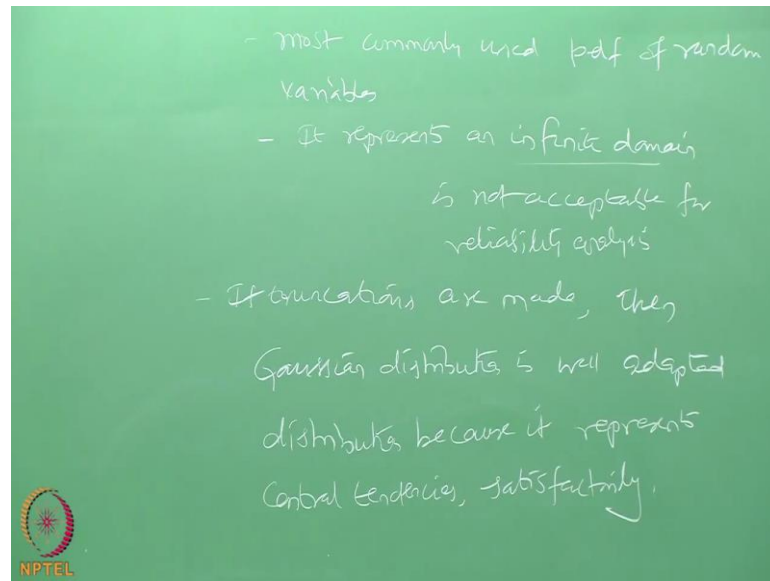 - most commonly used pdf of random
variables
- It represents an infinite domain
is not acceptable for
reliability analysis
- If truncations are made, then
Gaussian distribution is well adapted
distribution because it represents
Central tendencies, satisfactorily.
NPTEL